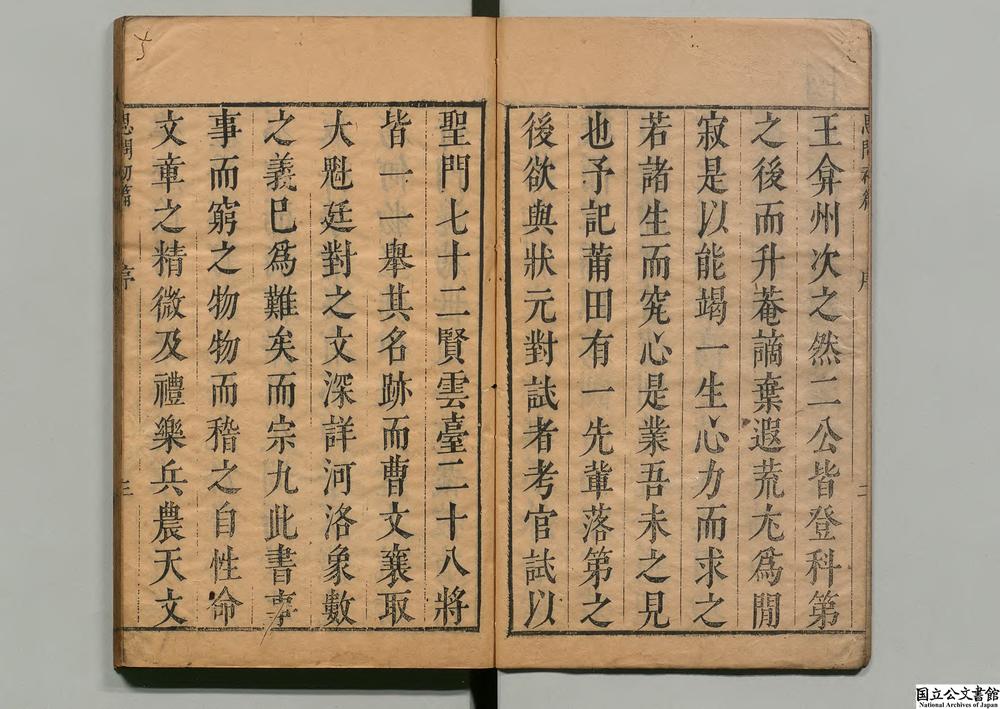 王弇州次之然二公皆登科第
之後而升菴謫棄遐荒尢爲閒
寂是以能竭一生心力而求之
若諸生而究心是業吾未之見
也予記莆田有一先輩落第之
後欲與狀元對試者考官試以
聖門七十二賢雲臺二十八將
皆一一舉其名跡而曹文襄取
大魁廷對之文深詳河洛象數
之義巳爲難矣而宗九此書事
事而窮之物物而稽之自性命
文章之精微及禮樂兵農天文
思問初篇
序
三
国立公文書館
National Archives of Japan